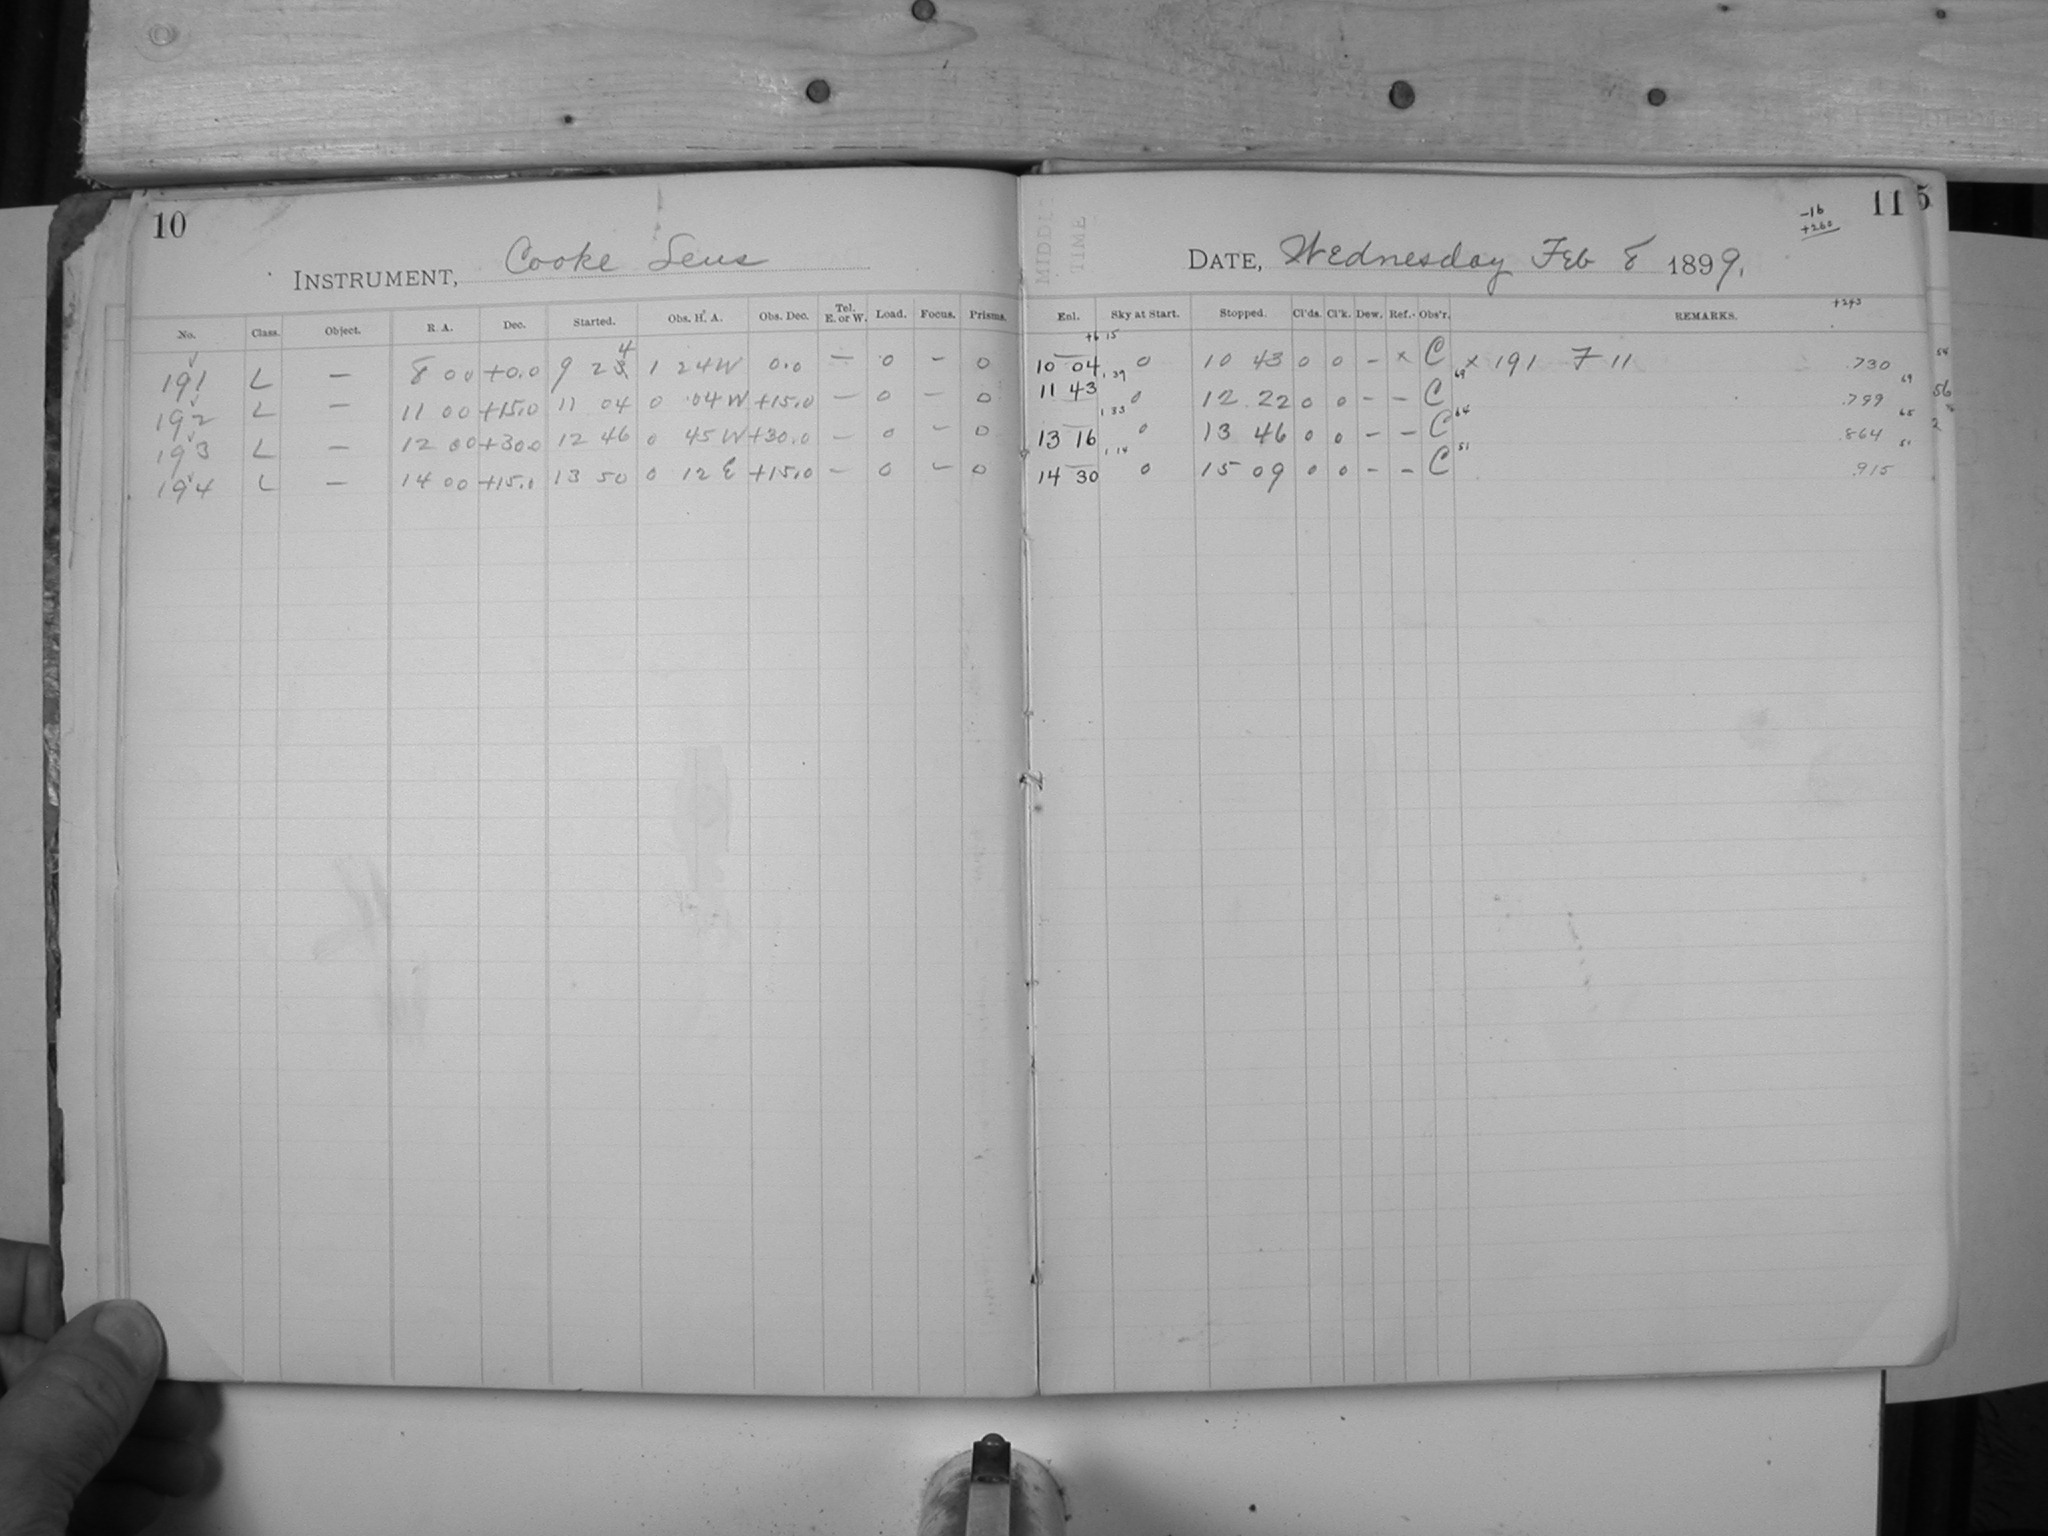 10
INSTRUMENT, Cooke Lens
No. Class. Object. R. A. Dec. Started. Obs. H. A. Obs. Dec. Tel. E. or W. Load. Focus. Prisms.
191 L — 8 00 +0.0 9 23 4 1 24 W 0.0 — 0 – 0
192 L — 11 00 +15.0 11 04 0 04 W +15.0 — 0 – 0
193 L — 12 00 +30.0 12 46 0 45 W +30.0 — 0 – 0
194 L — 14 00 +15.0 13 50 0 12 E +15.0 — 0 – 0
MIDDLE
TIME
11 5
-16
+260
DATE, Wednesday Feb 8 1899.
+243
Enl. Sky at Start. Stopped. Cl'ds. Cl'k. Dew. Ref. Obs'r. REMARKS.
+6 15
10 04 0 10 43 0 0 – x C x 191 F 11 .730
1.39 69 69
11 43 0 12 22 0 0 – – C .799 56
1.33 64 65
13 16 0 13 46 0 0 – – C .864 2
1.14 51 51
14 30 0 15 09 0 0 – – C .915